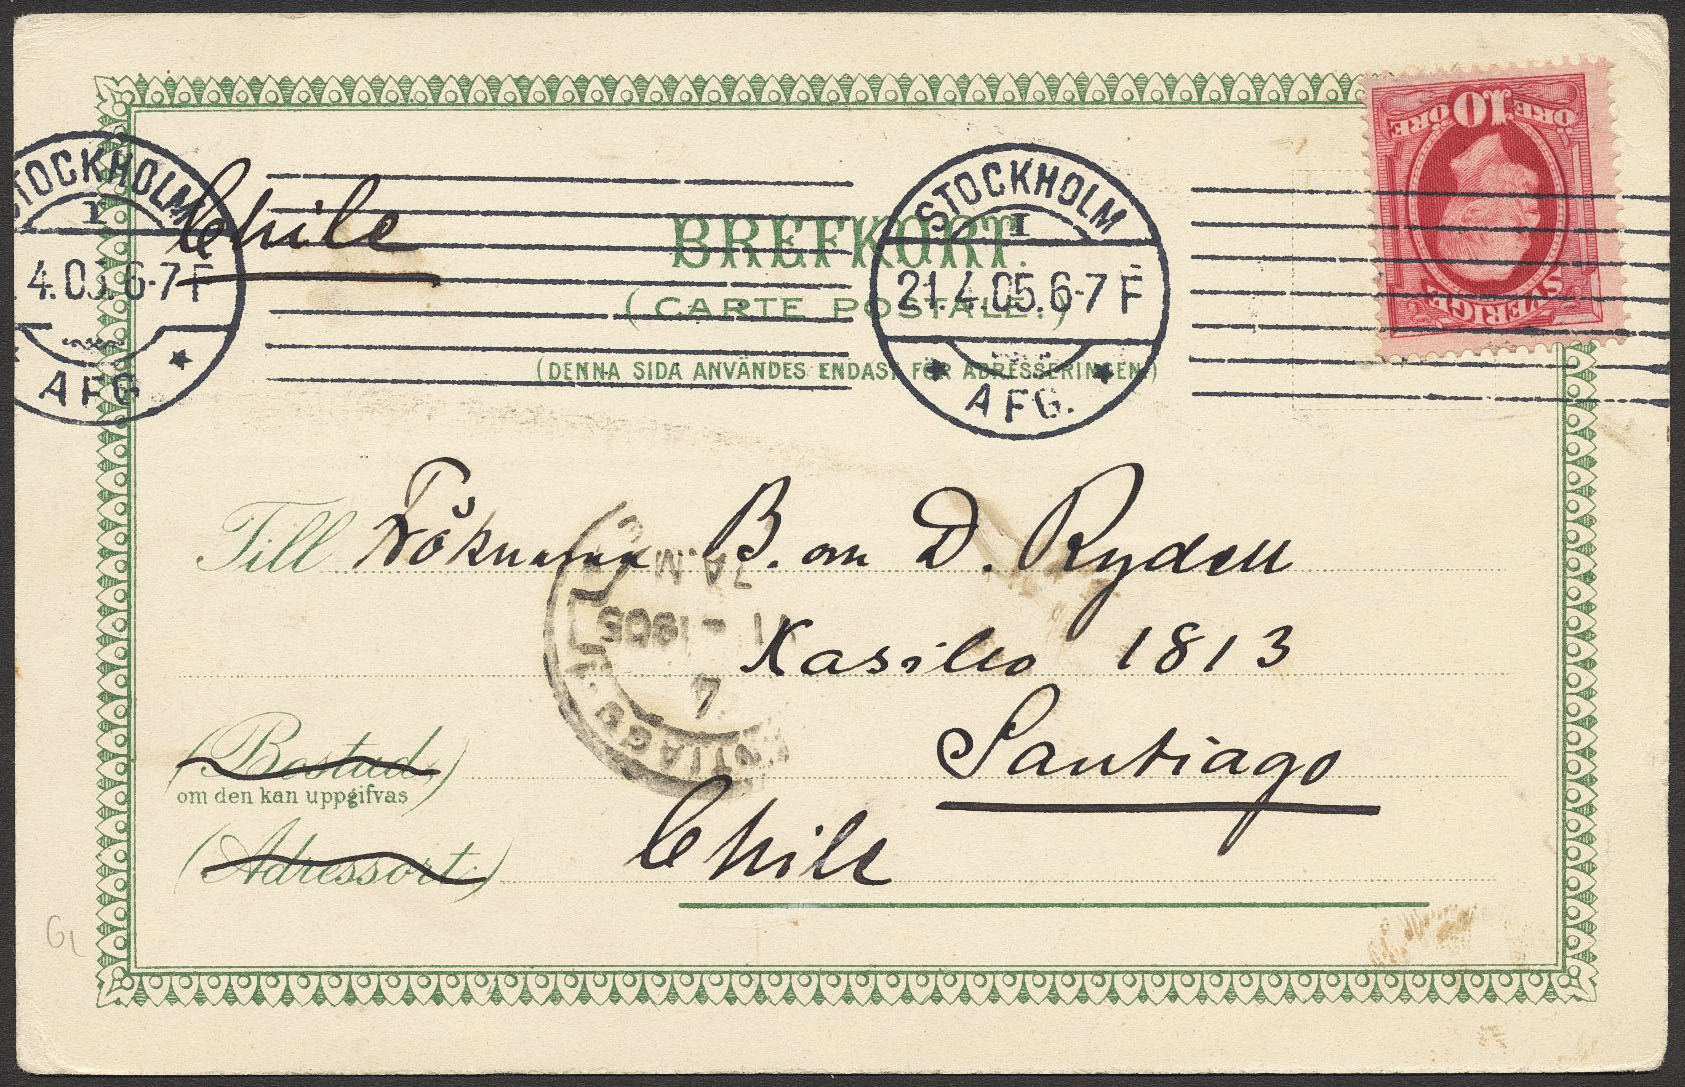 STOCKHOLM
I
4.05.6-7 F
AFG
Chile
BREFKORT.
(CARTE POSTALE.)
(DENNA SIDA ANVÄNDES ENDAST FÖR ADRESSERINGEN.)
STOCKHOLM
I
21.4.05.6-7 F
AFG.
10
ÖRE ÖRE
SVERIGE
Till Fröknarna B. om D. Rydell
7 A.M
11 - 1905
4
SANTIAGO
Kasileo 1813
Santiago
(Bostad)
om den kan uppgifvas
Chile
(Adressort.)